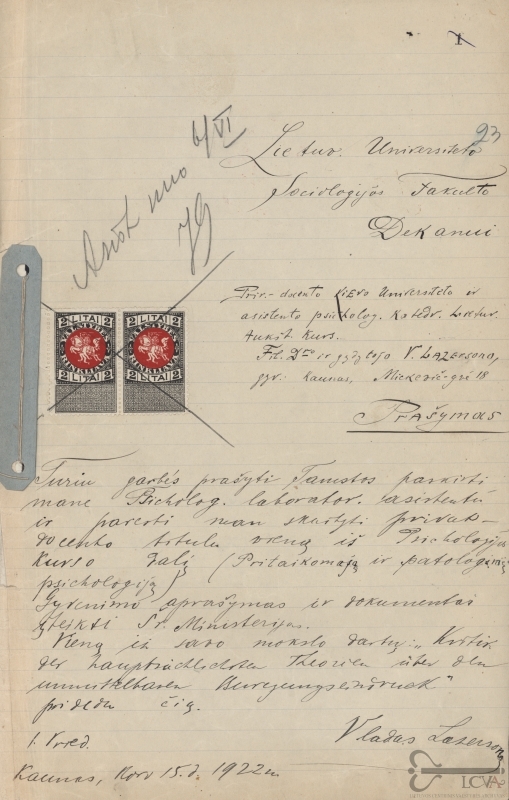 1
23
6/VI
Lietuv. Universiteto
Sociologijos Fakulto
Dekanui
Priv.-docento Kievo Universiteto ir
asistento psicholog. Katedr. Lietuv.
Aukšt. Kurs.
Fil. Dro ir gydytojo V. Lazersono,
gyv. Kaunas, Mickevič-gvė 18
Prašymas
2 LITAI 2
2 LITAI 2
2 LITAI 2
2 LITAI 2
Turiu garbės prašyti Tamstos paskirti
mane Psicholog. laborator. asistentu
ir pavesti man skaityti privat-
docento titulu vieną iš Psichologijos
Kurso dalį (Pritaikomąją ir patologinę
psichologiją)
Gyvenimo aprašymas ir dokumentai
įteikti Šv. Ministerijai.
Vieną iš savo mokslo darbų: „Kritik
der hauptsächlichsten Theorien über den
unmittelbaren Bewegungseindruck"
pridedu čia.
Vladas Lazersonas
Kaunas, Kovo 15 d. 1922 m
LCVA